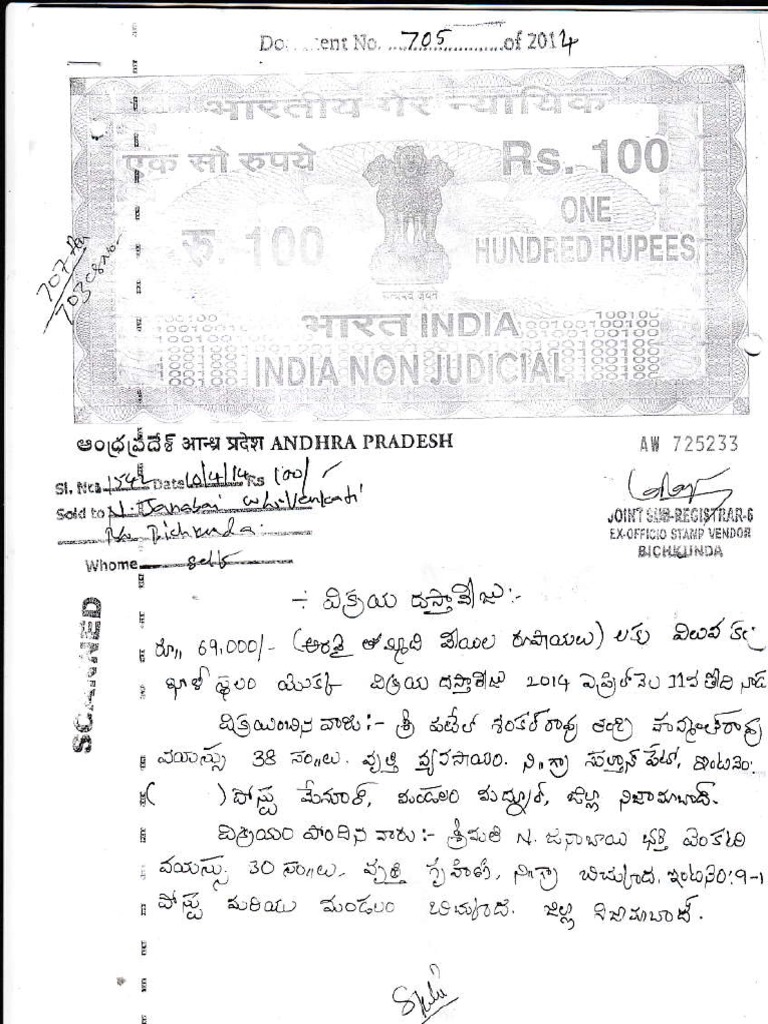 Document No. 705 of 2014
भारतीय गैर न्यायिक
एक सौ रुपये Rs. 100
रु. 100 ONE
HUNDRED RUPEES
सत्यमेव जयते
भारत INDIA
INDIA NON JUDICIAL
ఆంధ్రప్రదేశ్ आन्ध्र प्रदेश ANDHRA PRADESH
AW 725233
Sl. No. 1542 Date 10/4/14 Rs 100/-
Sold to N. Janabai W/o Venkati
R/o Bichkunda
Whome self
JOINT SUB-REGISTRAR-6
EX-OFFICIO STAMP VENDOR
BICHKUNDA
SCANNED
-: విక్రయ దస్తావేజు :-
రూ,, 69,000/- (అరవై తొమ్మిది వేయిల రూపాయలు) లకు విలువ కల్గ
ఖాళీ స్థలం యొక్క విక్రయ దస్తావేజు 2014 ఏప్రిల్ నెల 11వ తేది నాడు
విక్రయించిన వారు:- శ్రీ పటేల్ శంకర్ రావు తండ్రి హన్మంత్ రావు
వయస్సు 38 సం,,లు. వృత్తి వ్యవసాయం. ని,,గ్రా సుల్తాన్ పేట్, ఇంటినెం:
( ) పోస్టు మేనూర్, మండలం మద్నూర్, జిల్లా నిజామాబాద్.
విక్రయం పొందిన వారు:- శ్రీమతి N. జనాబాయి భర్త వెంకటి
వయస్సు 30 సం,,లు. వృత్తి గృహిణి, ని,,గ్రా బిచ్కుంద, ఇంటినెం:9-1
పోస్టు మరియు మండలం బిచ్కుంద. జిల్లా నిజామాబాద్.